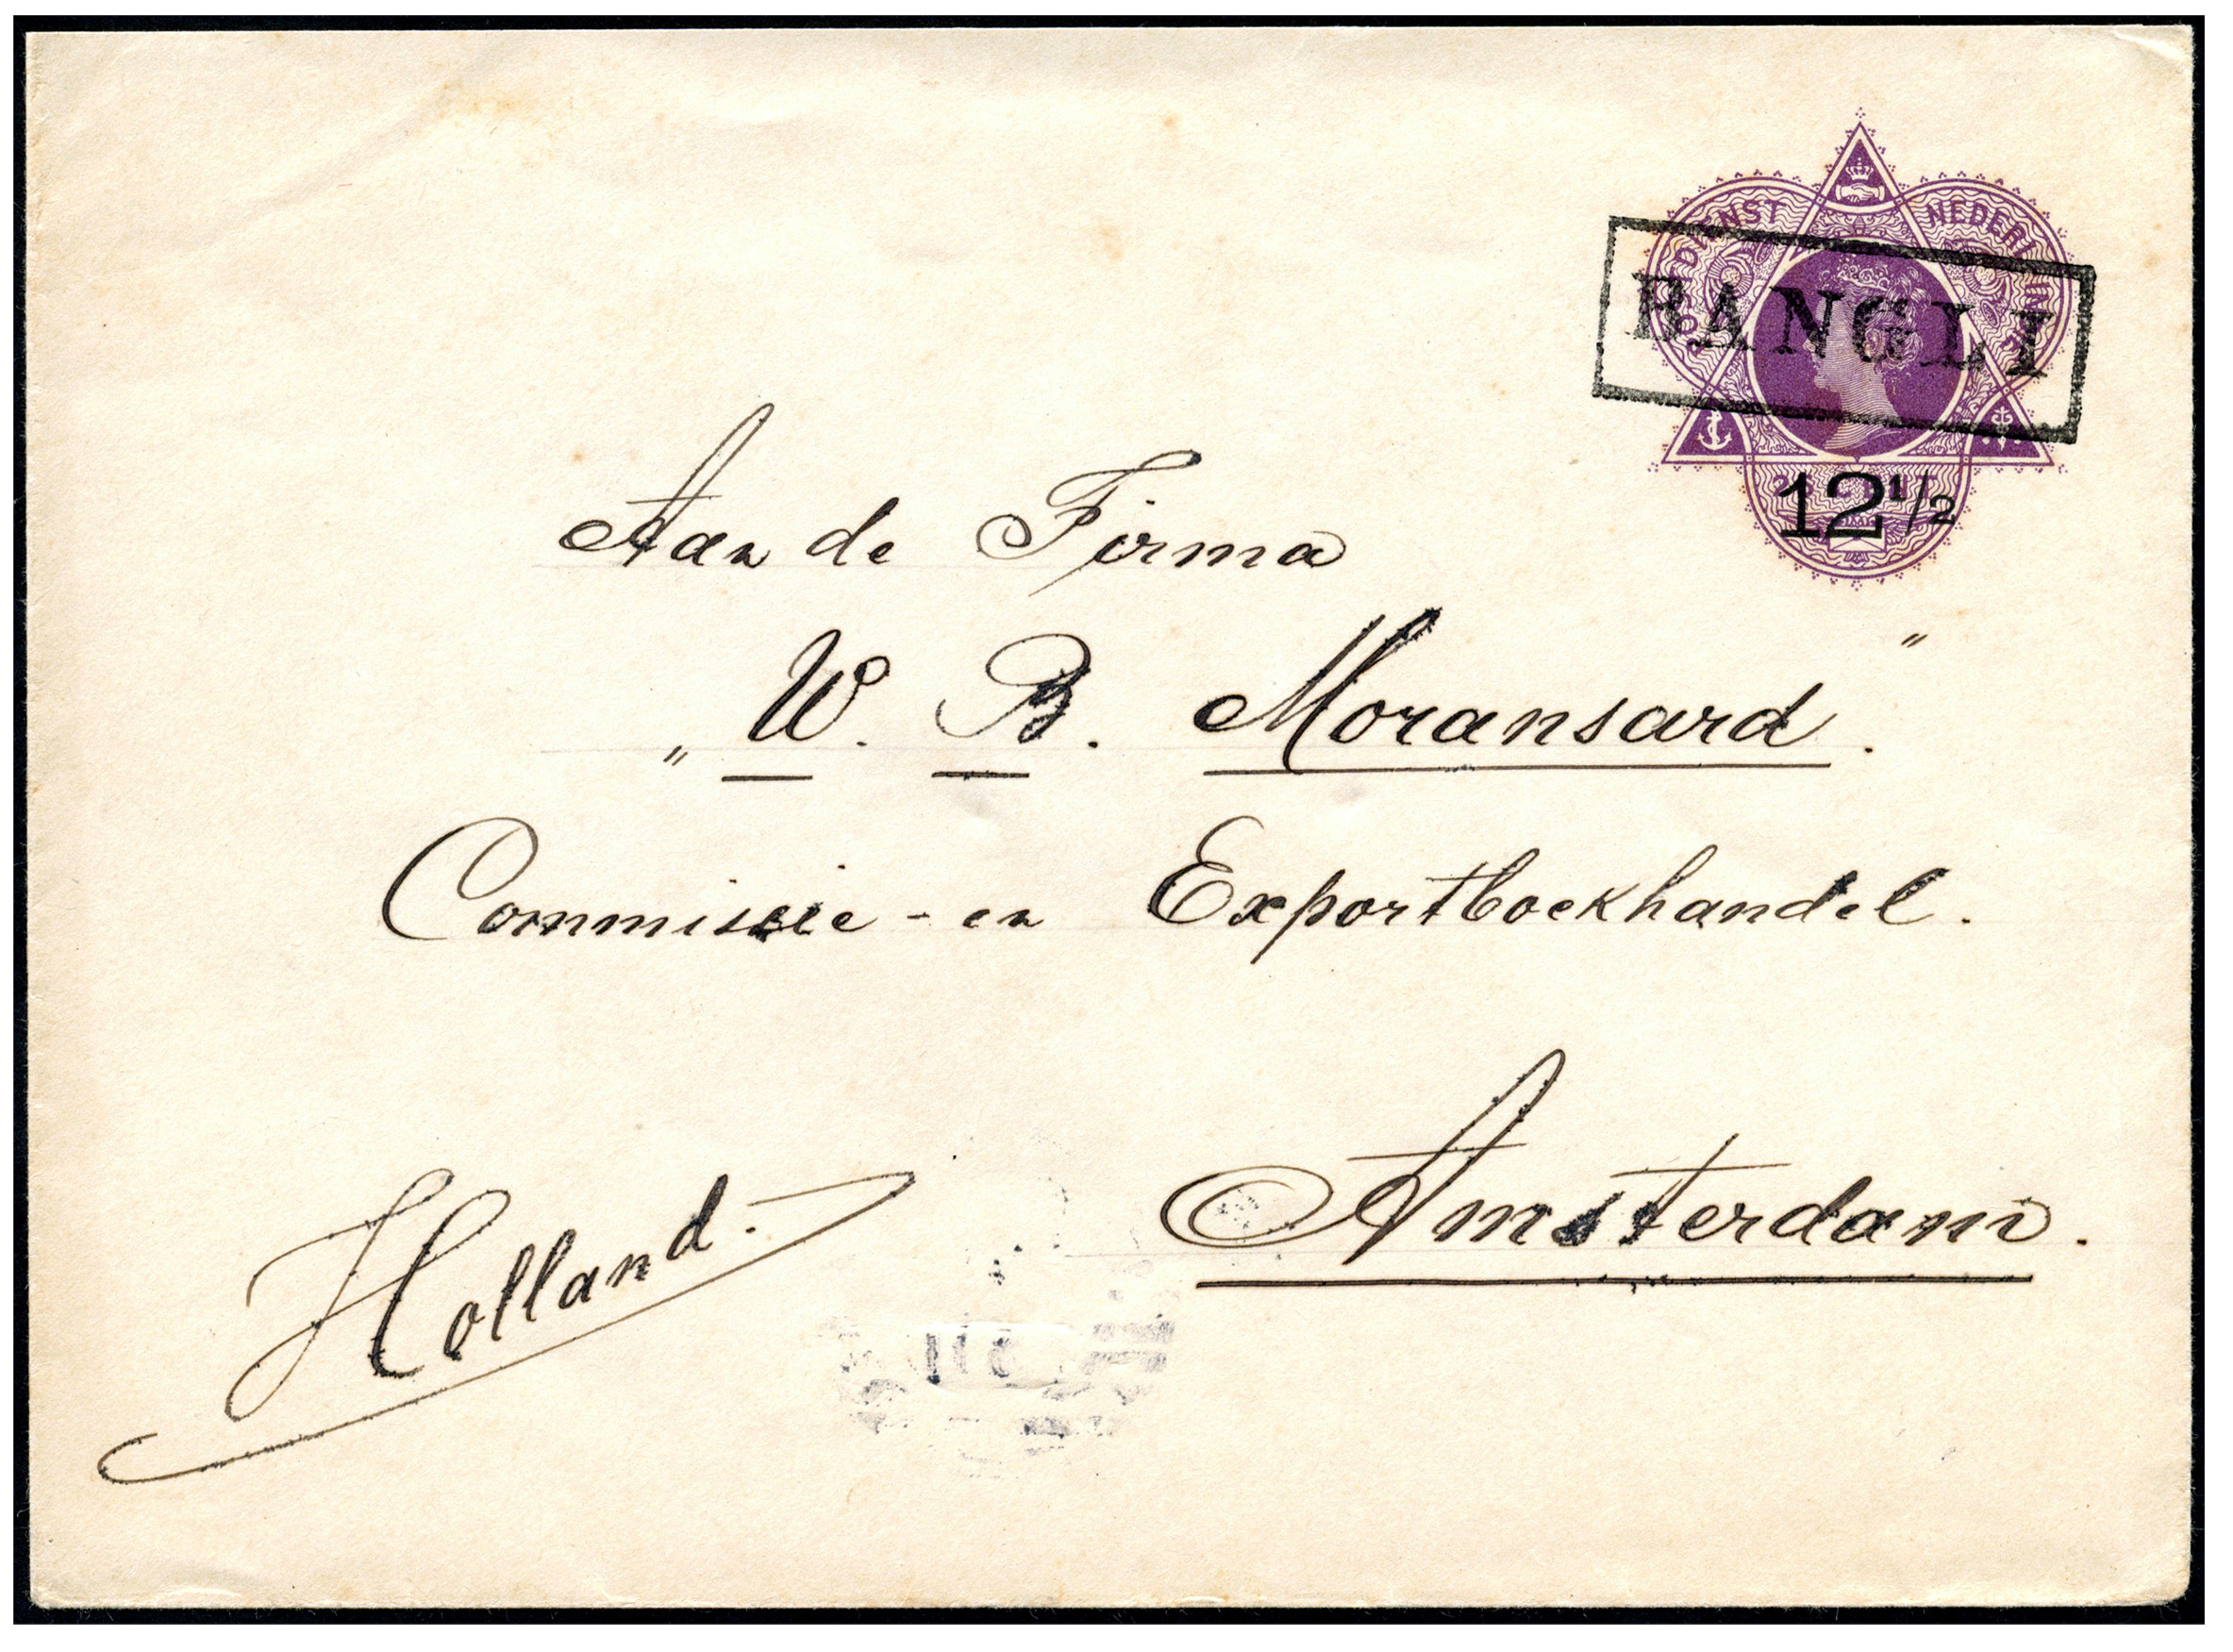 POSTDIENST NEDERL. INDIË
BANGLI
12 1/2
Aan de Firma
„W. B. Moransard."
Commissie - en Exportboekhandel.
Amsterdam.
Holland.